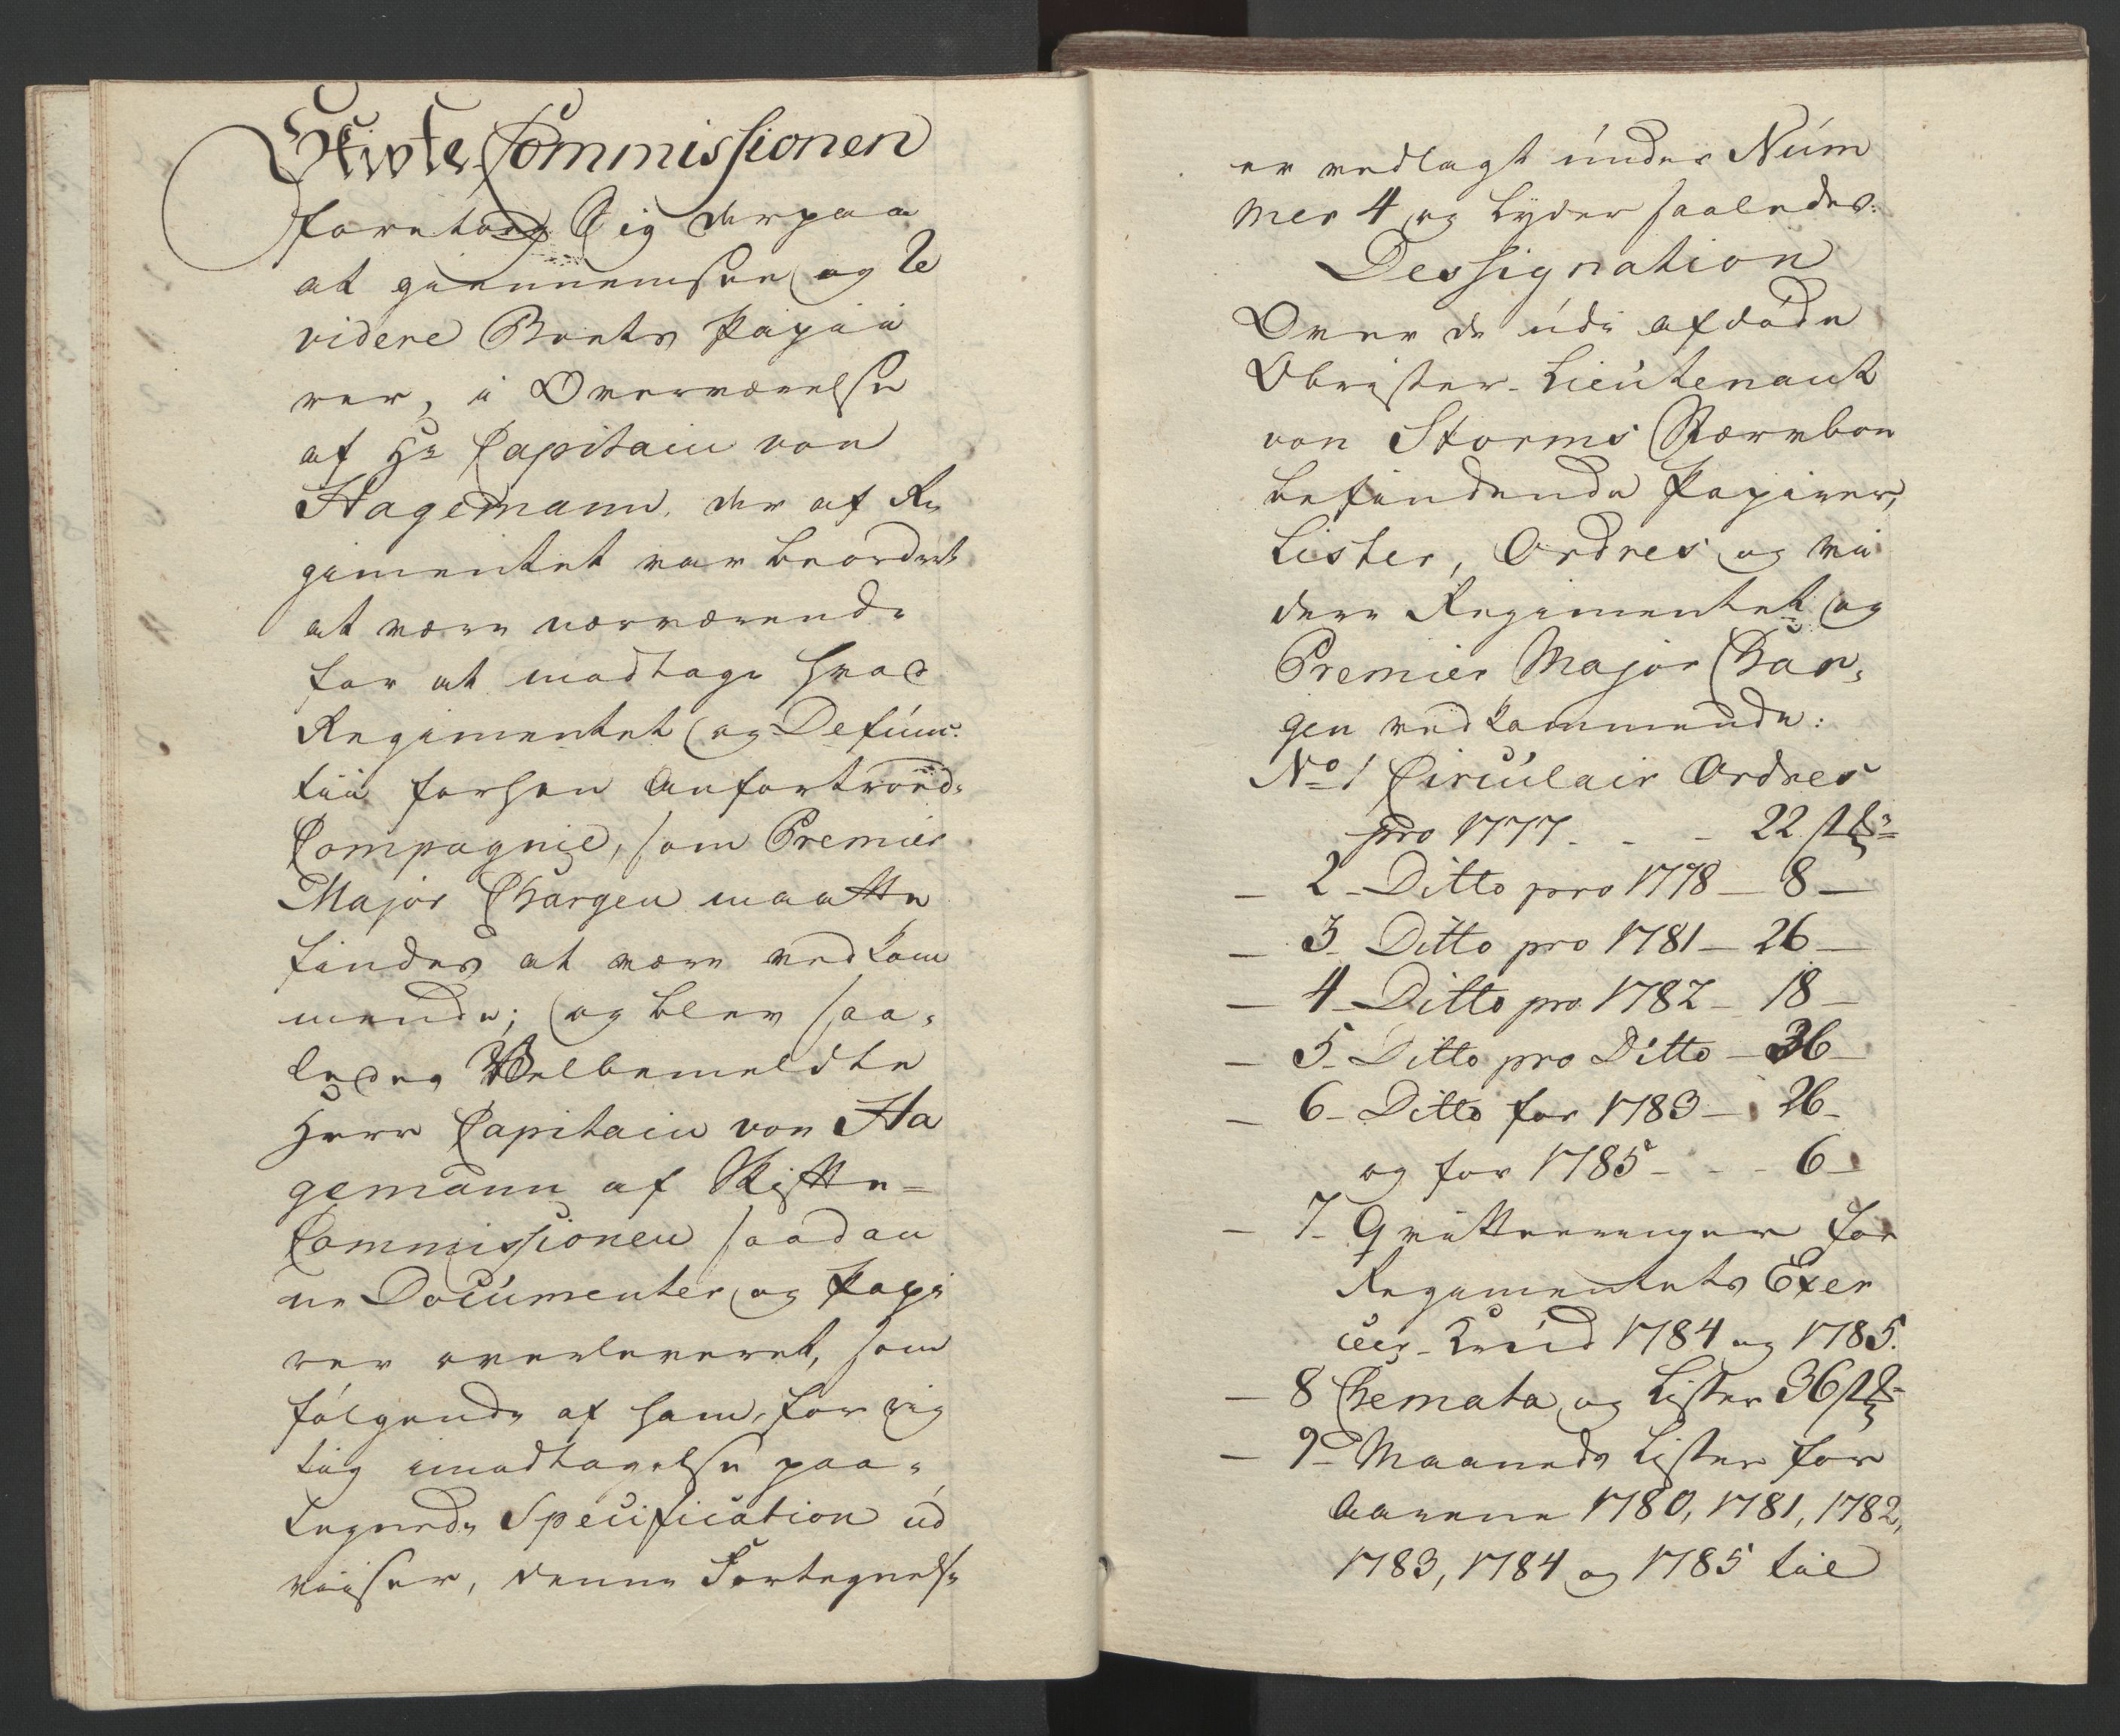 Skifte Commissionen
foretoeg Sig derpaa
at giennemsee og Re
videre Boets Papii
rer, i Overværelse
af Hr Capitain von
Hagemann, der af Re
gimentet var beordret
at være nærværende
for at modtage hvad
Regimentet og Defunc-
tii forhen Anfortroede
Compagnie, som Premier
Major Chargen maatte
findes at være vedkom
mende; og blev saa-
ledes Welbemeldte
Herr Capitain von Ha
gemann af Skifte-
Commissionen saadan
ne Documenter og Papi
rer overleveret, som
følgende af ham, for rig
tig imodtagelse paa-
tegnede Specification ud
viiser, denne Fortegnelse
er vedlagt under Num
mer 4 og lyder saaledes:
Dessignation
Over de udi afdøde
Obrister-Lieutenant
von Storms Stærvboe
befindende Papirer,
Lister, Ordres og vii
dere Regimentet og
Premier Major Char-
gen vedkommende:
No 1 Circulair Ordres
pro 1777 - - 22 stkr
— 2 - Ditto pro 1778 — 8 —
— 3 - Ditto pro 1781 — 26 —
— 4 - Ditto pro 1782 - 18 —
— 5 - Ditto pro Ditto — 36 —
— 6 - Ditto for 1783 — 26 -
og for 1785 - - - 6 —
— 7 - Qvitteringer for
Regimentets Exer
ceer-Krud 1784 og 1785.
— 8 Chemata og Lister 36 stkr
— 9 - Maaneds Lister for
Aarene 1780, 1781, 1782,
1783, 1784 og 1785 til